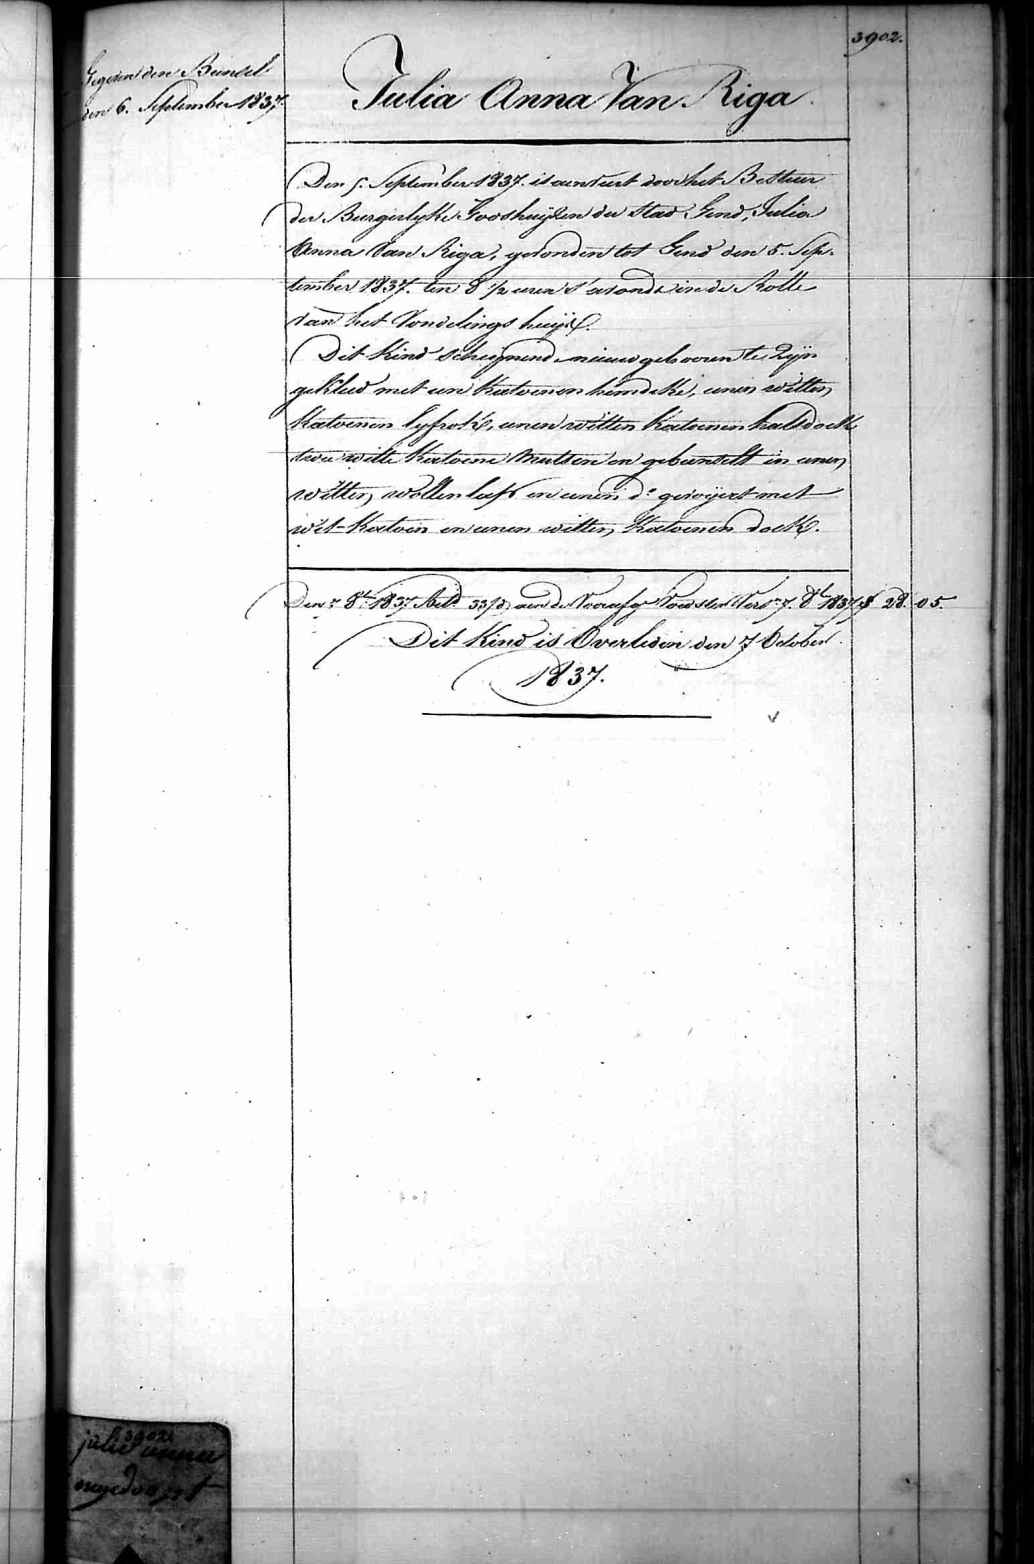 3902.
Gegeven den Bundel
den 6. September 1837.
Julia Anna Van Riga.
Den 5. September 1837. is aenveert door het Bestier
der Burgerlyke Godshuijzen der Stad Gend, Julia
Anna Van Riga, gevonden tot Gend den 5. Sep-
tember 1837. ten 8 ½ uren s'avonds in de Rolle
van het Vondelings huijs.
Dit Kind scheijnende nieuw gebooren te zijn
gekleed met een Kattoenen hemdeke, eenen witten
Kattoenen lyfrok, eenen witten Kattoenen halsdoek
twee witte Kattoene mutsen en gebundelt in eenen
witten wollen lap en eenen do gevoijert met
wit Kattoen en eenen witten Kattoenen doek.
Den 7 8br 1837 aen de Voedster 7. 8br 1837 28. 05.
Dit Kind is Overleden den 7 October
1837.
3902
julie anna
ongedoopt